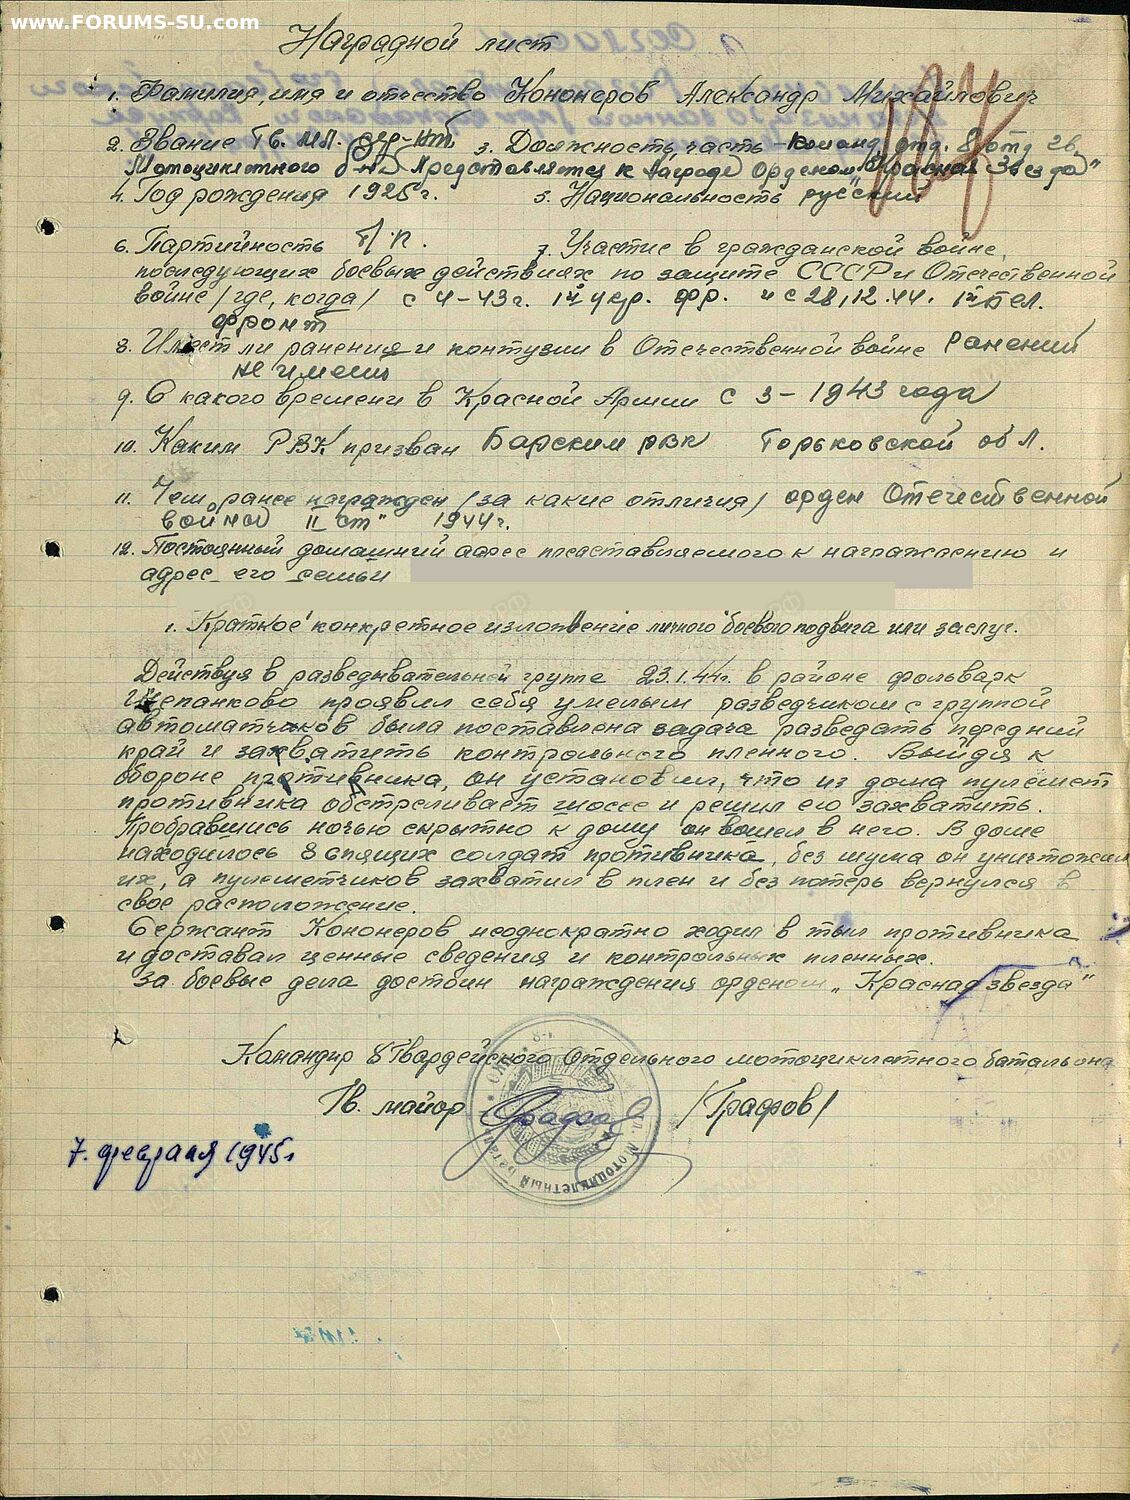 www.FORUMS-SU.com
Наградной лист
1. Фамилия, имя и отчество Кононеров Александр Михайлович
2. Звание Гв. мл. с-нт 3. Должность, часть команд. отд. 8 отд гв.
Мотоциклетного б-на Представляется к Награде Орденом "Красная Звезда"
4. Год рождения 1925 г. 5. Национальность русский
6. Партийность б/п. 7. Участие в гражданской войне,
последующих боевых действиях по защите СССР и Отечественной
войне (где, когда) с 4-43 г. 1й Укр. фр. и с 28.12.44. 1й Бел.
фронт
8. Имеет ли ранения и контузии в Отечественной войне Ранений
не имеет
9. С какого времени в Красной Армии с 3-1943 года
10. Каким РВК призван Барским рвк Горьковской обл.
11. Чем ранее награжден (за какие отличия) орден Отечественной
войны II ст" 1944 г.
12. Постоянный домашний адрес представляемого к награждению и
адрес его семьи
1. Краткое конкретное изложение личного боевого подвига или заслуг.
Действуя в разведывательной группе 23.1.44г. в районе фольварк
Щепанково проявил себя умелым разведчиком с группой
автоматчиков была поставлена задача разведать передний
край и захватить контрольного пленного. Выйдя к
обороне противника, он установил, что из дома пулемет
противника обстреливает шоссе и решил его захватить.
Пробравшись ночью скрытно к дому он вошел в него. В доме
находилось 8 спящих солдат противника, без шума он уничтожил
их, а пулеметчиков захватил в плен и без потерь вернулся в
свое расположение.
Сержант Кононеров неоднократно ходил в тыл противника
и доставал ценные сведения и контрольных пленных.
За боевые дела достоин награждения орденом „Красная звезда"
Командир 8 Гвардейского Отдельного мотоциклетного батальона
Гв. майор /Графов/
Мотоциклетный
7. февраля 1945 г